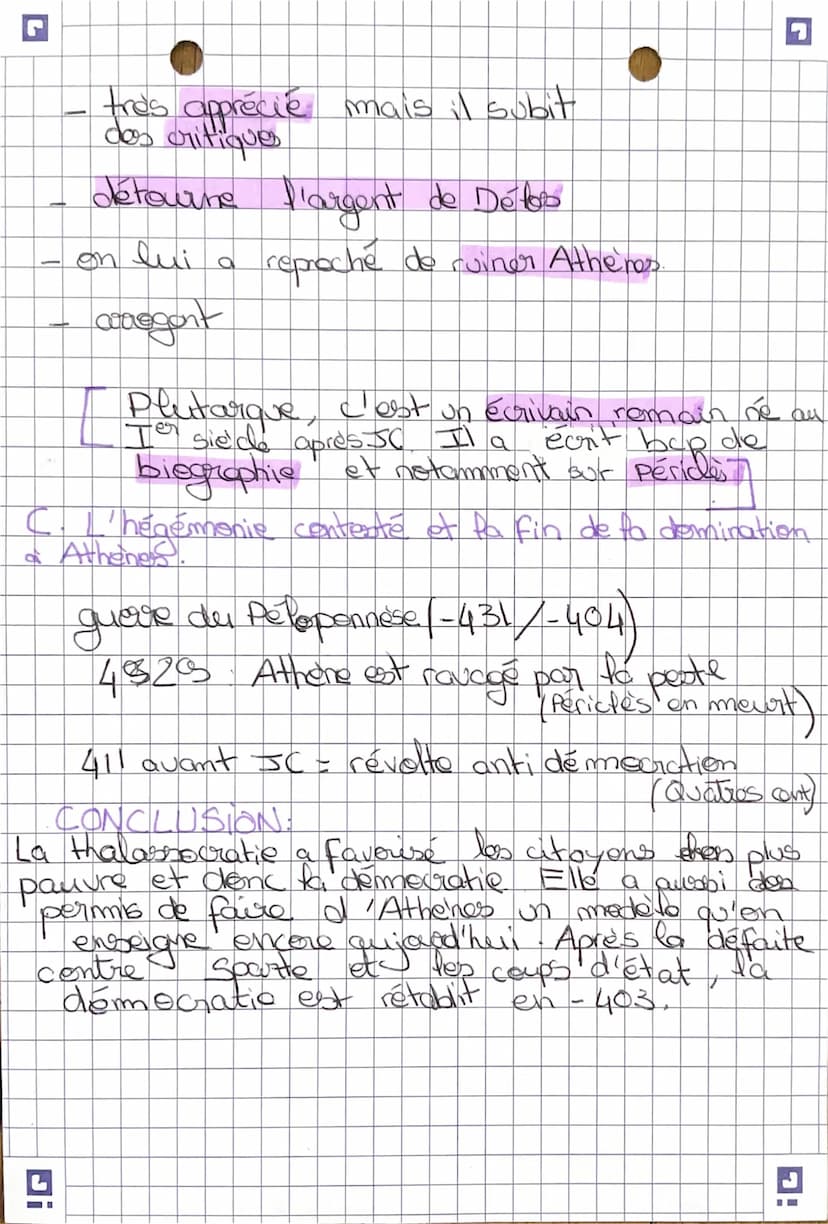 - très apprécié mais il subit
des critiques
- détourne l'argent de Délos
- on lui a reproché de ruiner Athènes.
- arrogant
[ Plutarque, c'est un écrivain romain né au
Ier siècle après JC. Il a écrit bcp de
biographie et notamment sur Périclès ]
C. L'hégémonie contesté et la fin de la domination
à Athènes.
guerre du Péloponnèse (-431/-404)
: Athène est ravagé par la peste
(Périclès en meurt)
411 avant JC = révolte anti démocration
(Quatres cent)
CONCLUSION:
La thalassocratie a favorisé les citoyens plus
pauvre et donc la démocratie. Elle a aussi
permis de faire d'Athènes un modèle qu'on
enseigne encore aujourd'hui. Après la défaite
contre Sparte et les coups d'état, la
démocratie est rétablit en -403.